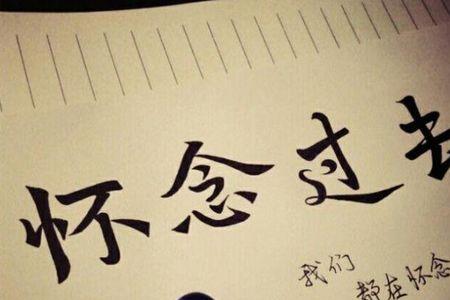 怀念过去
我们
都在怀念